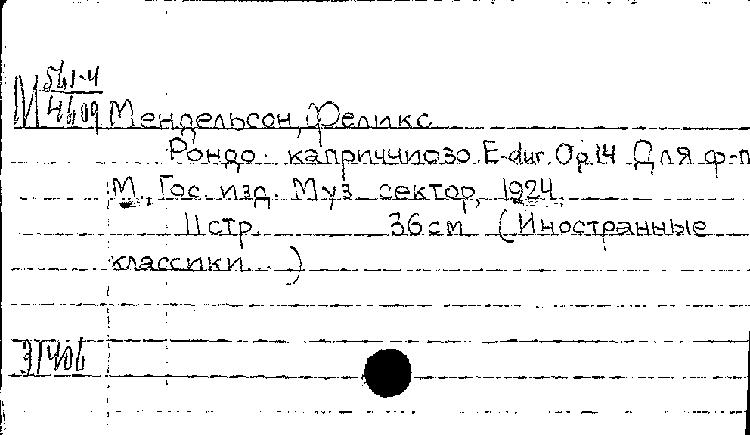 М 561-4
4609 Мендельсон, Феликс
Рондо каприччиозо E-dur. Op.14 Для ф-п
М., Гос. изд. Муз. сектор, 1924.
11 стр. 36 см (Иностранные
классики...)
31406